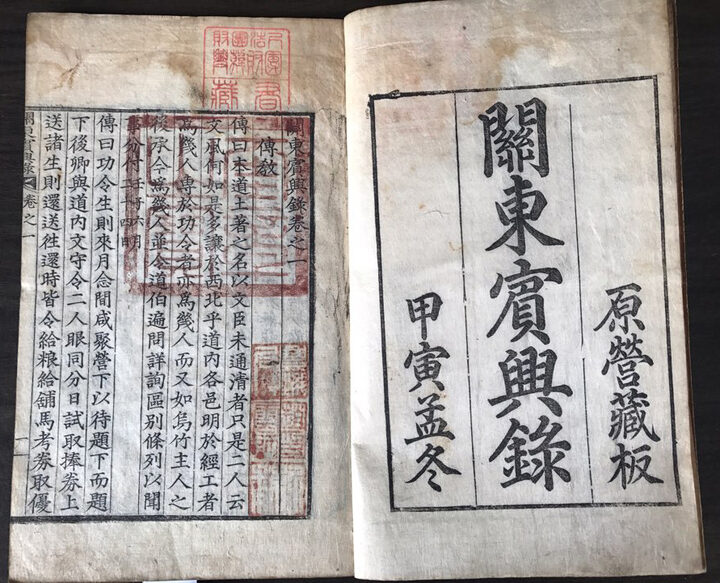 原營藏板
關東賓興錄
甲寅孟冬
關東賓興錄卷之一
傳教
傳曰本道土著之名以文臣未通清者只是二人云
文風何如是多讓於西北乎道內各邑明於經工者
為幾人專於功令者亦為幾人而又如烏竹主人之
後承今為幾人並令道伯遍問詳詢區別條列以聞
事分付
傳曰功令生則來月念間咸聚營下以待題下而題
下後卿與道內文守令二人眼同分日試取捧券上
送諸生則還送往還時皆令給粮給舖馬考券取優
關東賓興錄 卷之一
一